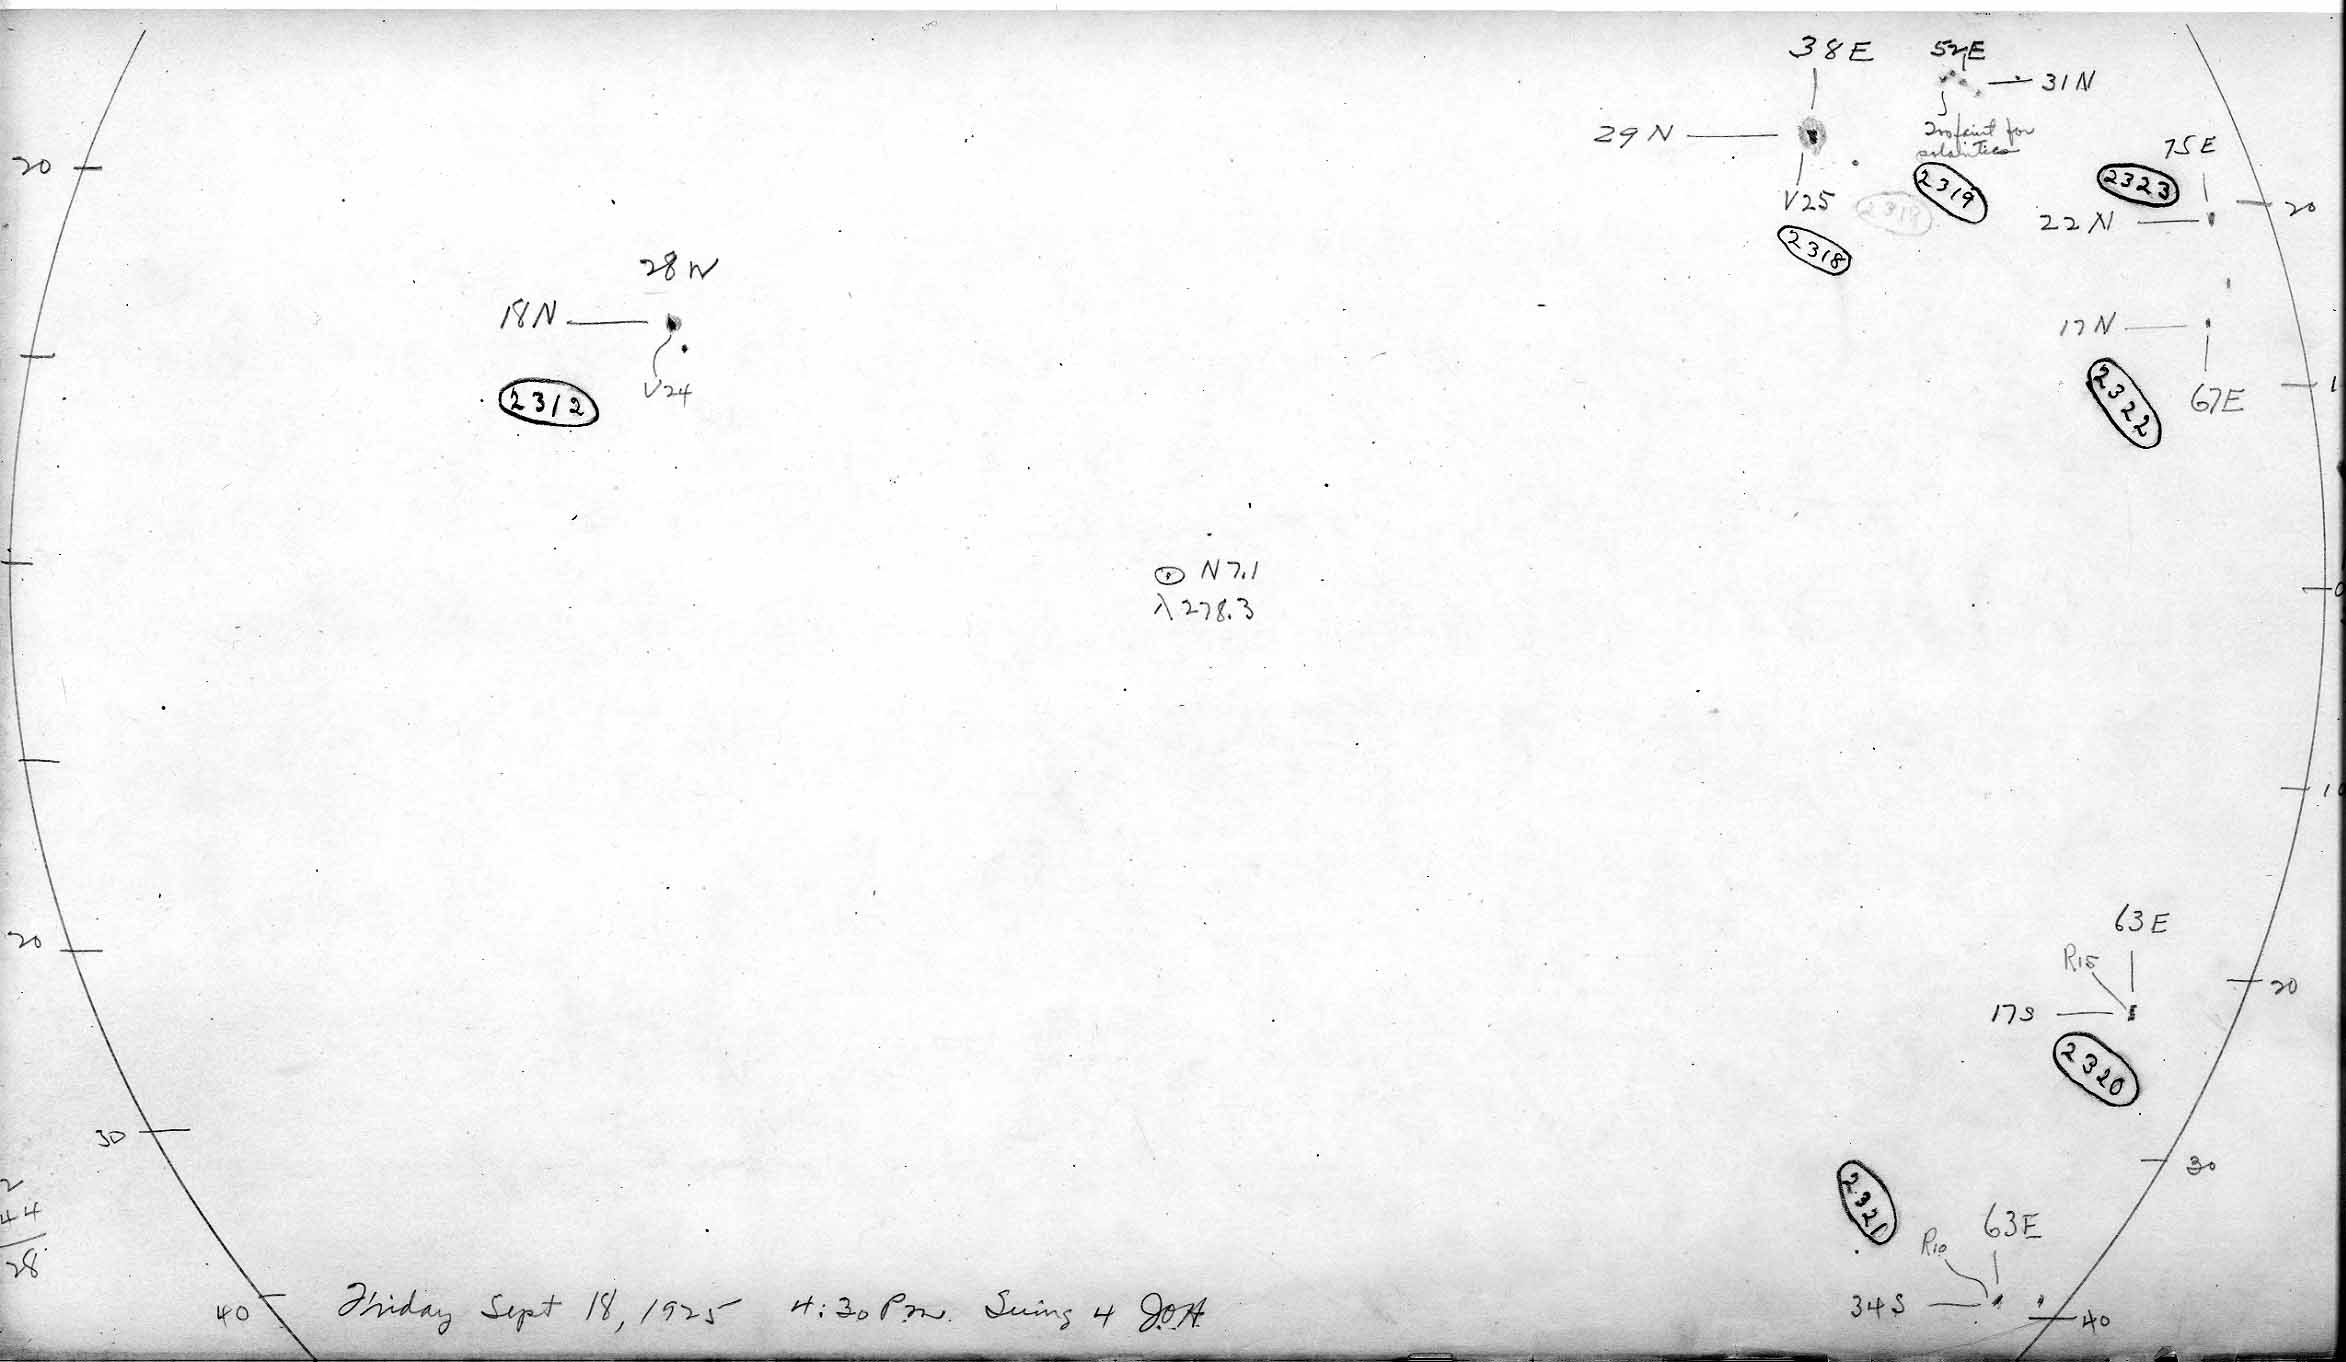 38E
52E
31N
29N
Too faint for
polarities
75E
20
2323
2319
V25
2319
20
22N
2318
28W
18N
17N
V24
2312
67E
1
2322
N7.1
λ278.3
0
10
63E
20
R15
20
17S
2320
30
30
2
44
2321
63E
28
R10
34S
40
Friday Sept 18, 1925 4:30 P.m. Seeing 4 J.O.H.
40